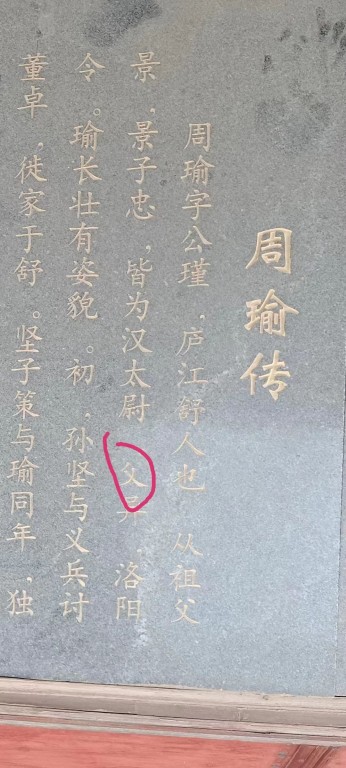 周瑜传
周瑜字公瑾，庐江舒人也。从祖父
景，景子忠，皆为汉太尉。父异，洛阳
令。瑜长壮有姿貌。初，孙坚与义兵讨
董卓，徙家于舒。坚子策与瑜同年，独